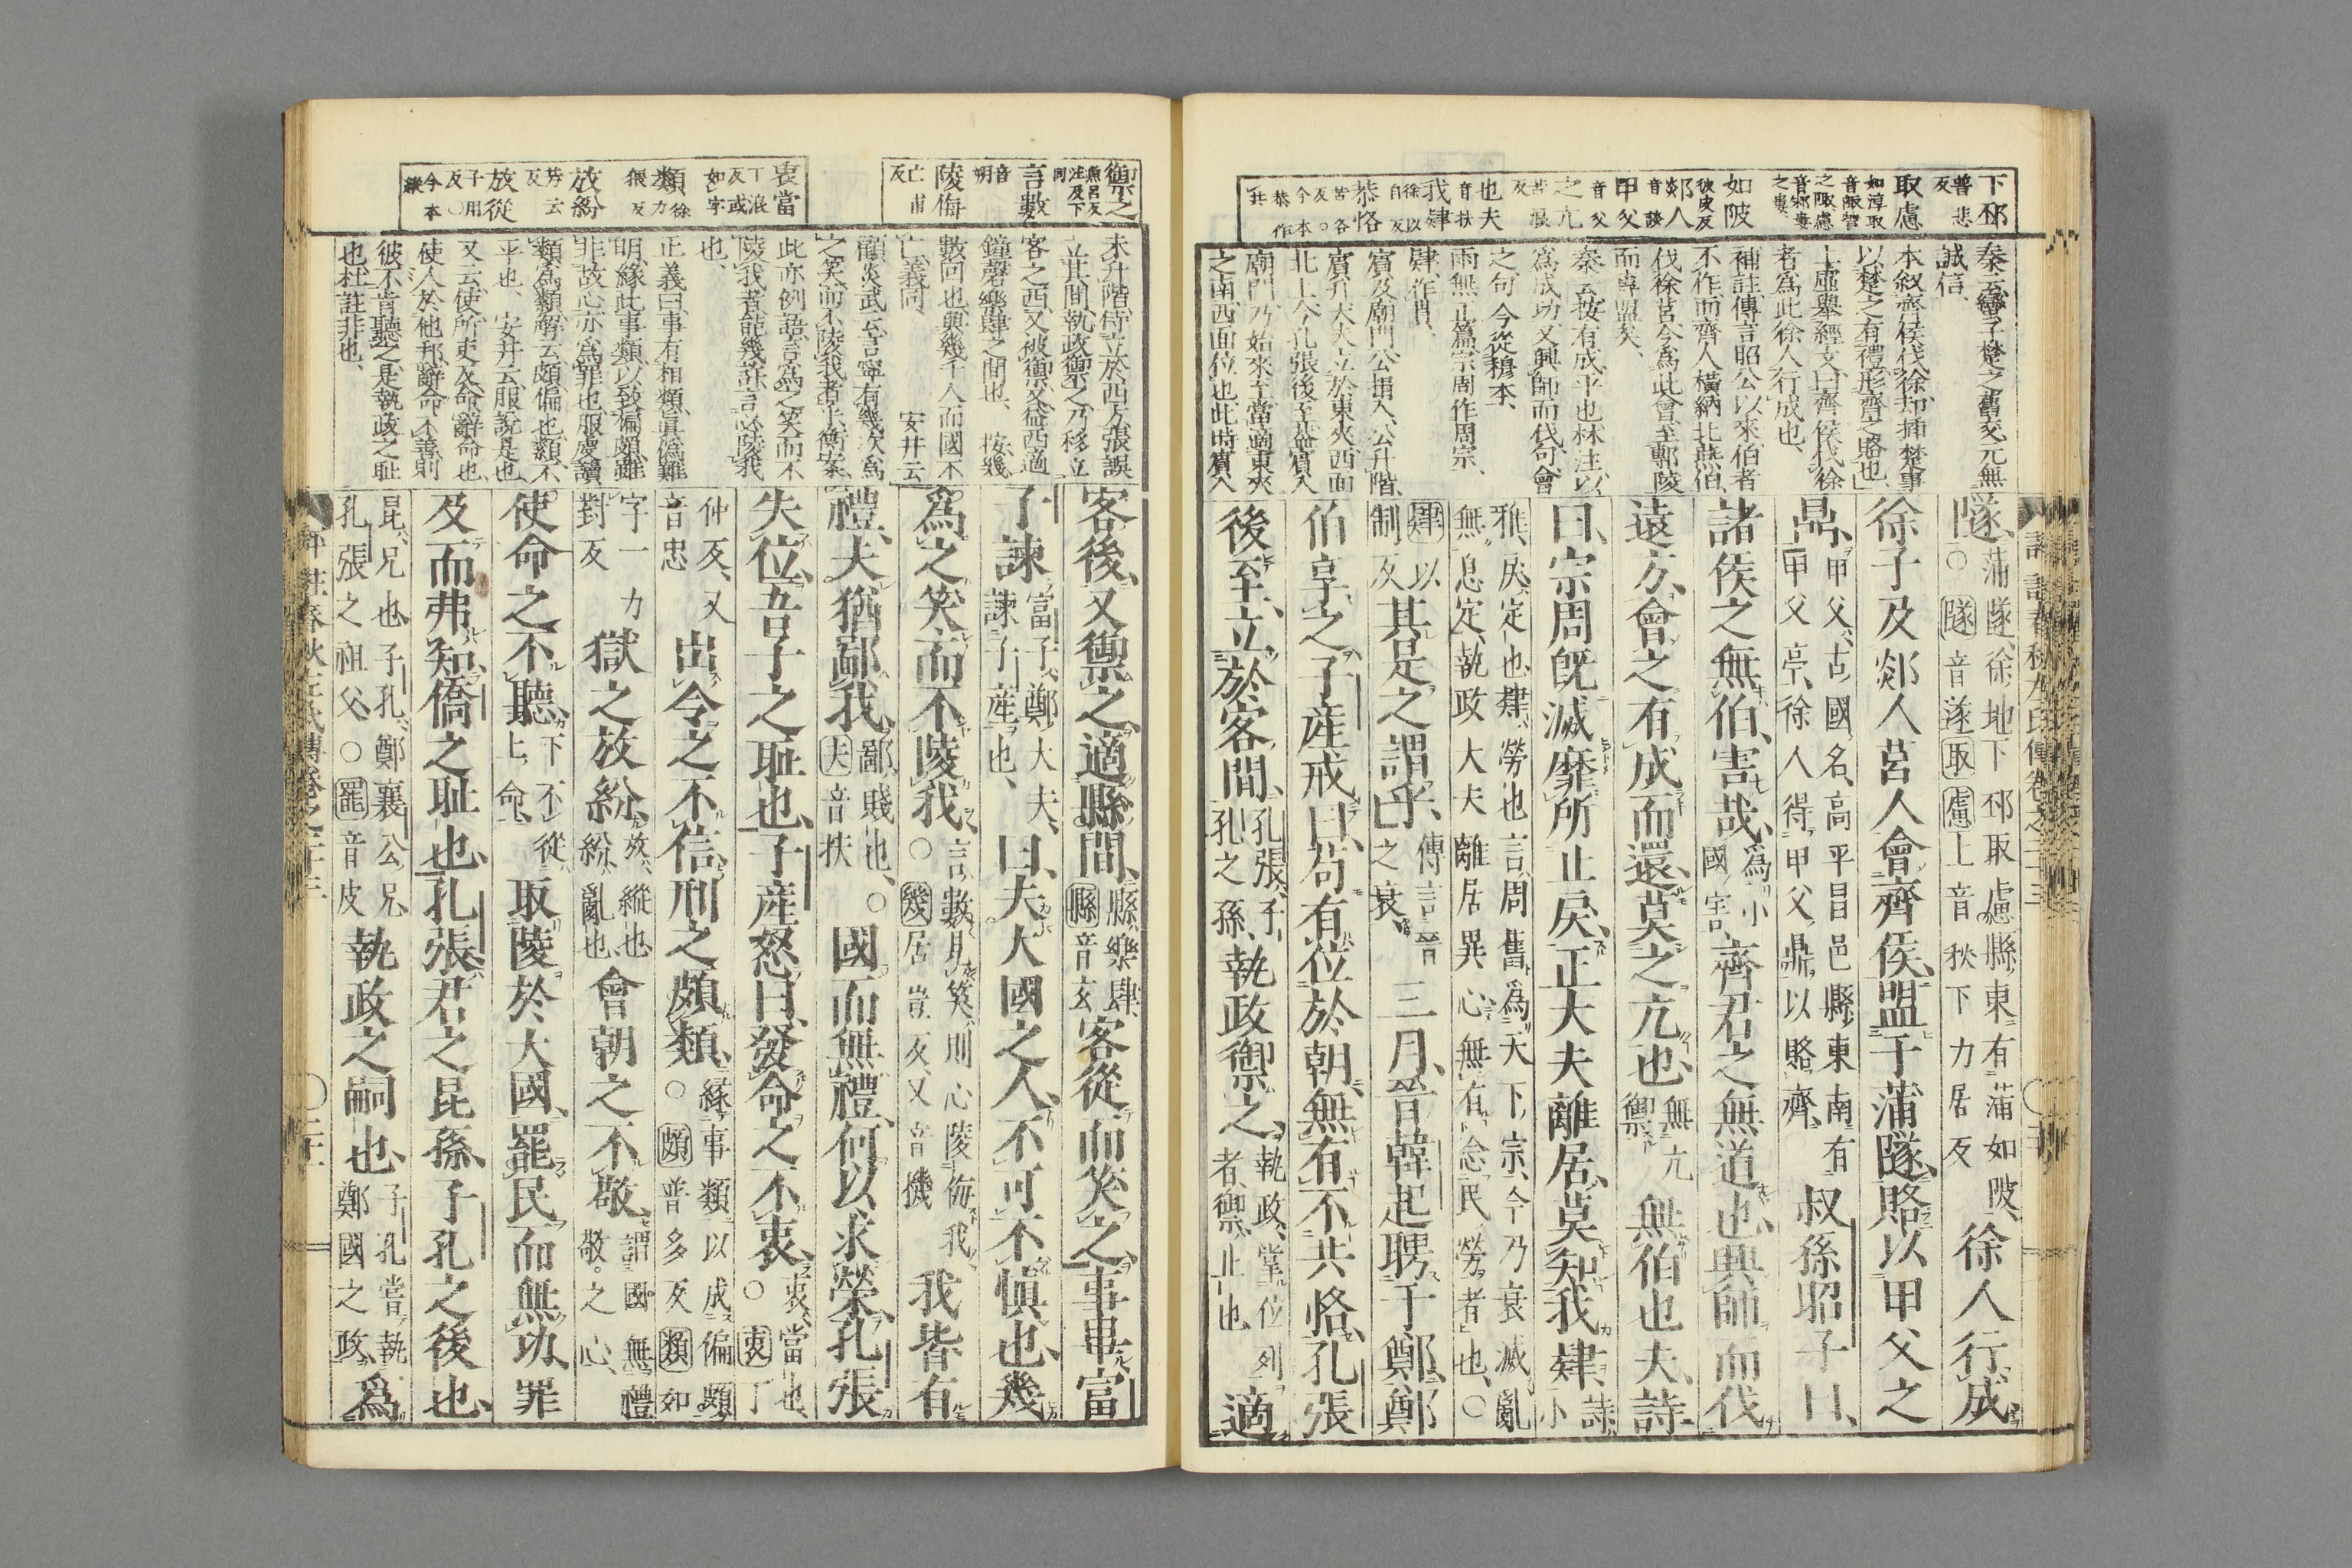 下邳
普悲
反
取慮
如淳取
音陬訾
之陬慮
音郲婁
之婁
如陂
彼皮反
郯人
音談
甲父
音父
之亢
苦浪
反
也夫
音扶
我肄
徐以
自反
恭恪
苦各
反○
今本
恭作
共
誠信、
本叙齊侯伐徐、却挿楚事
以楚之有禮、形齊之賂也、
上虛舉經文曰齊侯伐徐
者、爲此徐人行成也、
補註、傳言昭公以來伯者
不作、而齊人橫納北燕伯、
伐徐莒、今爲此會、至鄟陵
而專盟矣、
爲成功、又興師而伐句、會
之句、今從穆本、
雨無正篇宗周作周宗、
肄作勩、
賓及廟門、公揖入、公升階、
賓升、大夫立於東夾西面
北上、今孔張後至、蓋賓入
廟門、乃始來至、當適東夾
之南西面位也、此時賓入
隧、
蒲隧、徐地、下邳取慮縣東有蒲如陂、
○隧音遂取慮上音秋下力居反
徐人行成、
徐子及郯人莒人會齊侯、盟于蒲隧、賂以甲父之
鼎、
甲父、古國名、高平昌邑縣東南有
甲父亭、徐人得甲父鼎、以賂齊、
叔孫昭子曰、
諸侯之無伯、害哉、
爲小
國害、
齊君之無道也、興師而伐
遠方、會之有成而還、莫之亢也、
無亢
禦、
無伯也夫、詩
曰、宗周旣滅、靡所止戾、正大夫離居、莫知我肄、
詩小
雅、戾、定也、肄、勞也、言周舊爲天下宗、今乃衰滅、亂
無息定、執政大夫離居異心、無有念民勞者也、○
肄以
制反
其是之謂乎、
傳言晉
之衰、
三月、晉韓起聘于鄭、鄭
伯享之、子產戒曰、苟有位於朝、無有不共恪、孔張
後至、立於客間、
孔張、子
孔之孫、
執政禦之、
執政、掌位列
者、禦、止也、
適
禦之
魚呂反
注及下
同
言數
音
朔
陵侮
亡甫
反
衷當
丁浪
反或
如字
類徐
力
猥反
放紛
芳云
反
放從
子用
反○
今本
縱
未升階、侍立於西方、張誤
立其間、執政禦之、乃移立
客之西、又被禦、又益西適
鐘磬樂肆之間也、 按、幾
數回也、與幾千人而國不
亡義同、 安井云
顧炎武云、言寧有幾次爲
之笑、而不陵我者乎、衡案、
此亦例語、言爲之笑而不
陵我者、能幾許、言必陵我
也、
正義曰、事有相類、眞僞難
明、緣此事類、以致偏頗、雖
非故心、亦爲罪也、服虔讀
類爲纇、解云、頗、偏也、纇、不
平也、 安井云、服說是也、
又云、使、所吏反、命、辭命也、
使人於他邦、辭命不善、則
彼不肯聽之、是執政之耻
也、杜註非也、
客後、又禦之、適縣間、
縣、樂肆、
縣音玄
客從而笑之、事畢、富
子諫、
富子、鄭大夫、
諫子產也、
曰、夫大國之人、不可不愼也、幾
爲之笑、而不陵我、
言數見笑、則心陵侮我、
○幾居豈反又音機
我皆有
禮、夫猶鄙我、
鄙、賤也、○
夫音扶
國而無禮、何以求榮、孔張
失位、吾子之耻也、子產怒曰、發命之不衷、
衷、當也、
○衷丁
仲反、又
音忠
出令之不信、刑之頗類、
緣事類以成偏頗、
○頗普多反類如
字一力
對反
獄之放紛、
放、縱也、
紛、亂也、
會朝之不敬、
謂國無禮
敬之心、
使命之不聽、
下不從
上命、
取陵於大國、罷民而無功、罪
及而弗知、僑之耻也、孔張、君之昆孫、子孔之後也、
昆、兄也、子孔、鄭襄公兄、
孔張之祖父、○罷音皮
執政之嗣也、
子孔嘗執
鄭國之政、
爲